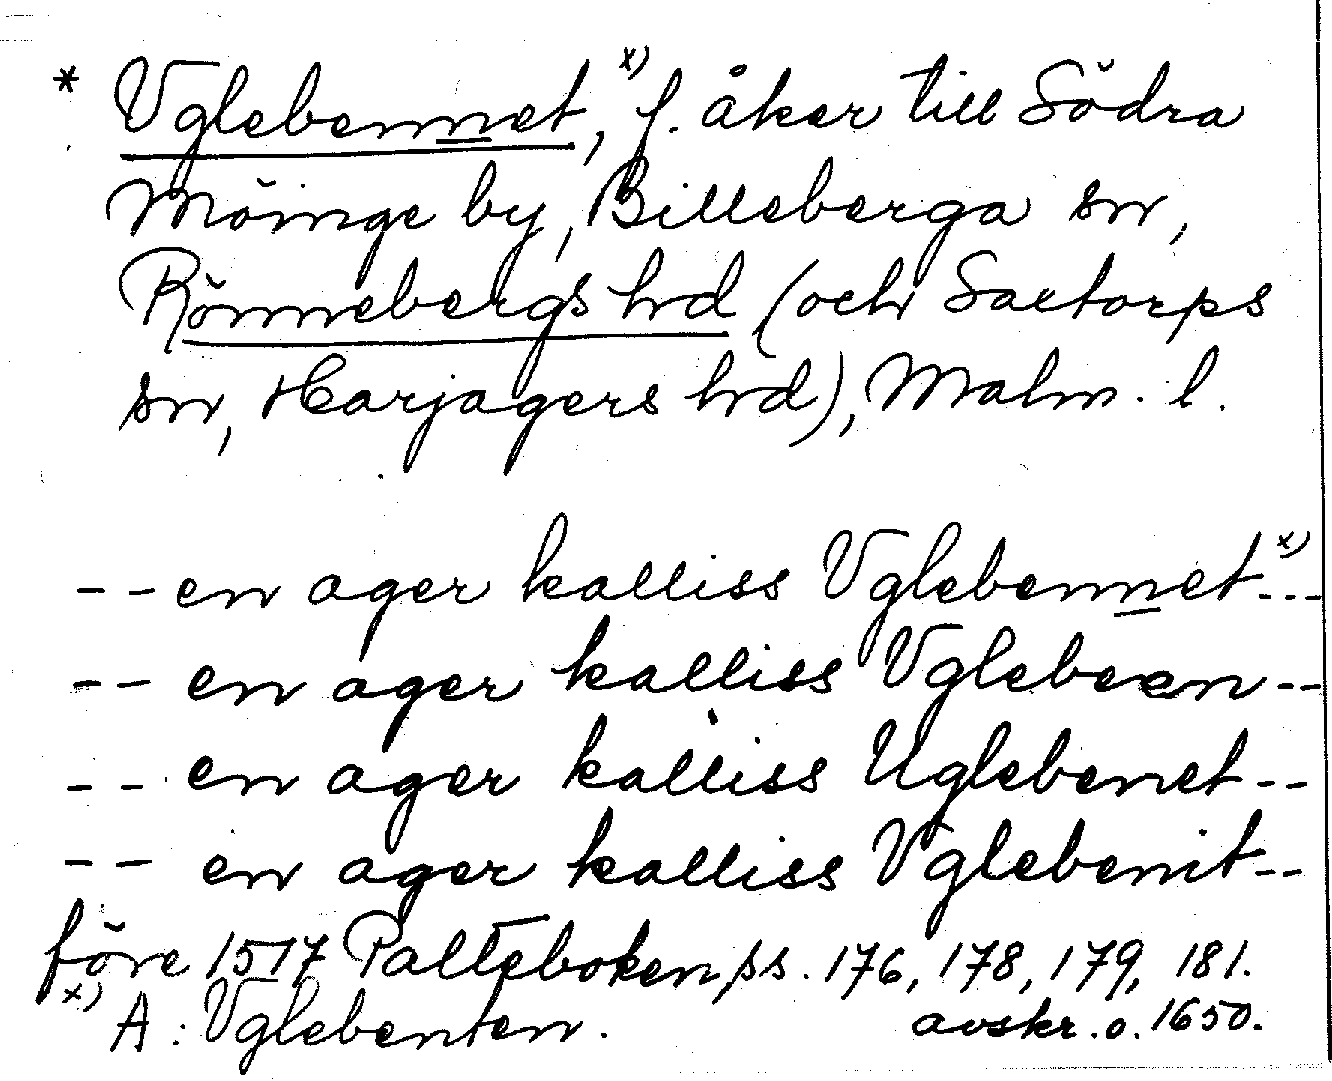 * Vglebennet, x) f. åker till Södra
Möinge by, Billeberga sn,
Rönnebergs hrd (och Saxtorps
sn, Harjagers hrd), Malm. l.
-- en ager kalliss Vglebennet x) ---
-- en ager kalliss Vglebeen --
-- en ager kalliss Uglebenet --
-- en ager kalliss Vglebenit --
före 1517 Palteboken ss. 176, 178, 179, 181.
x) A: Vglebenten. avskr. o. 1650.